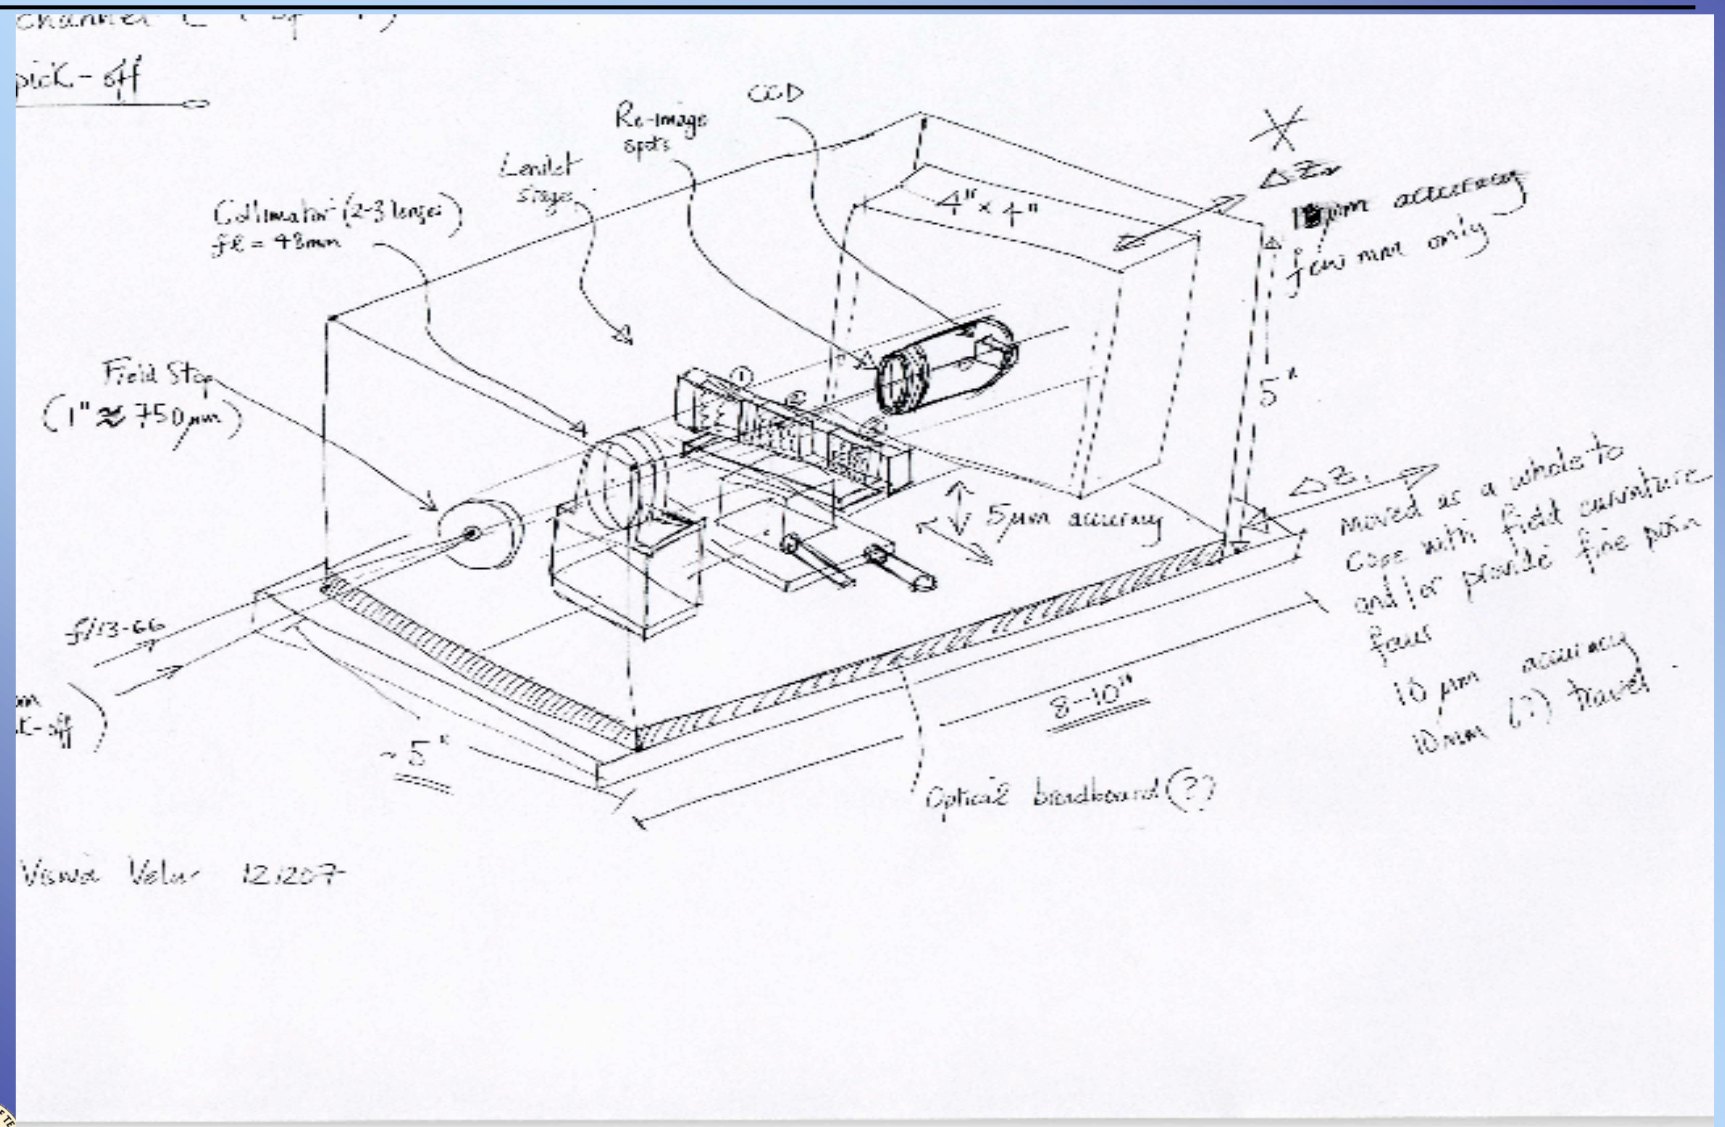 channel
pick-off
CCD
Re-image
spots
Lenslet
stages
Collimator (2-3 lenses)
fl = 48mm
4" x 4"
accuracy
few mm only
Field Stop
(1" ≈ 750μm)
1
2
5"
5μm accuracy
ΔZ1
moved as a whole to
cope with field curvature
and/or provide fine
focus
10 μm accuracy
10mm (?) travel
f/13.66
~5"
8-10"
Optical breadboard (?)
121207